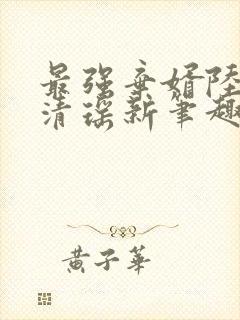 最强弃婿陆
清瑶新笔趣
黄子华